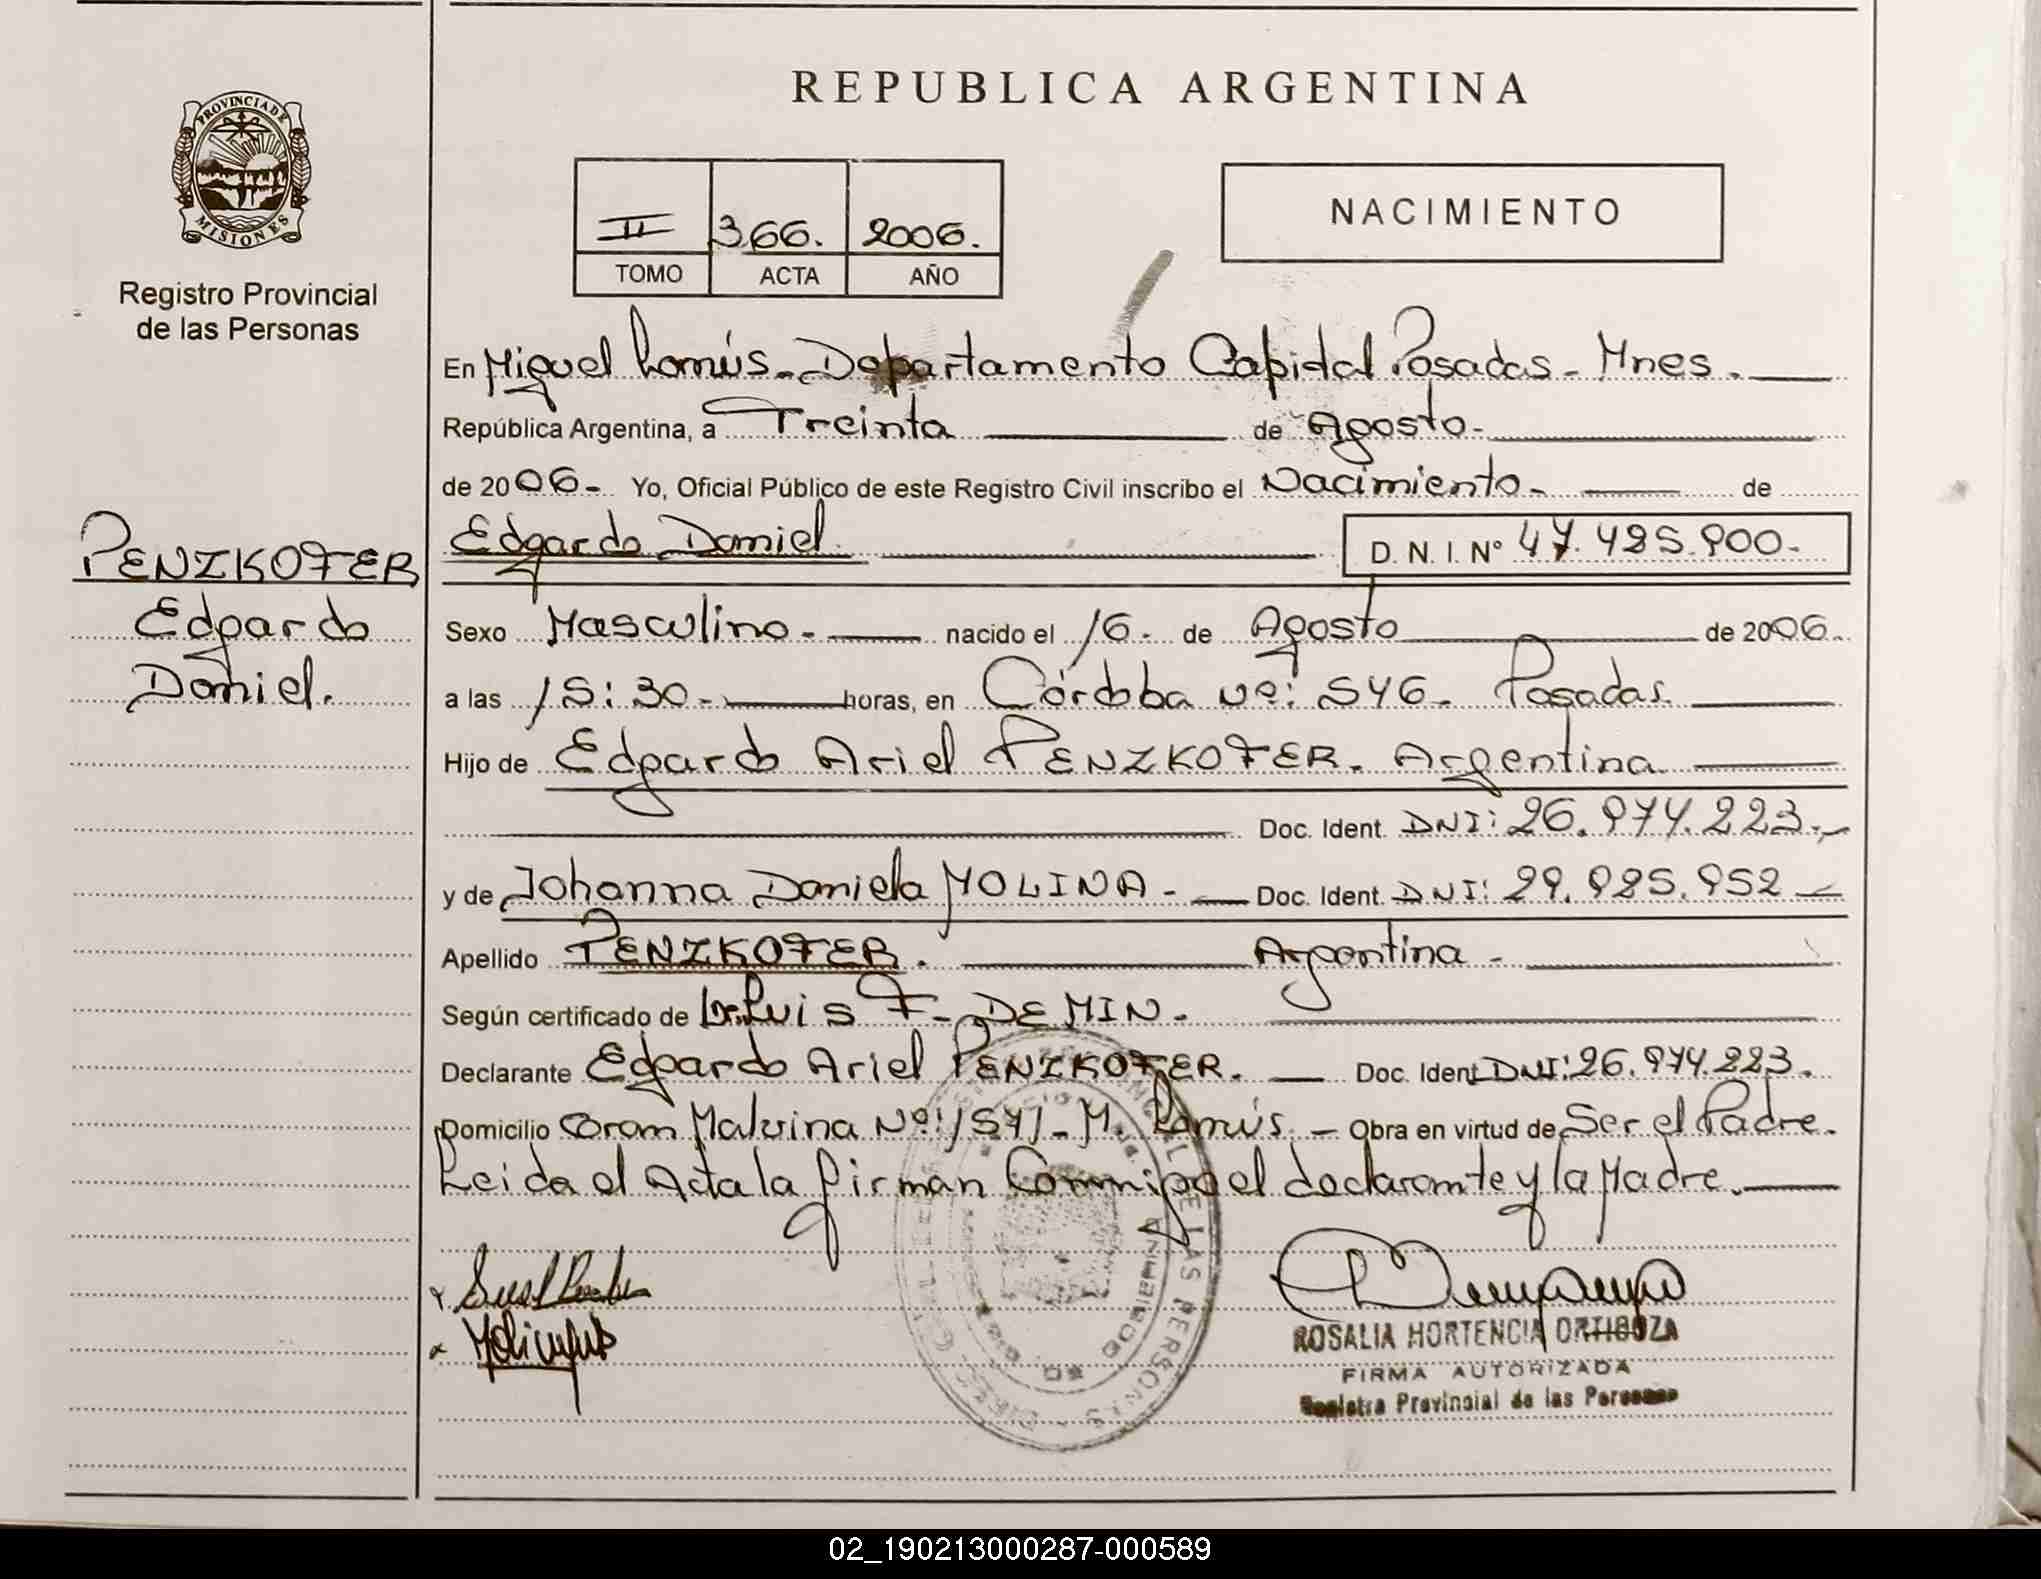 REPUBLICA ARGENTINA
PROVINCIA DE
MISIONES
Registro Provincial
de las Personas
II 366. 2006.
TOMO ACTA AÑO
NACIMIENTO
En Miguel Lanús - Departamento Capital Posadas - Mnes.
República Argentina, a Treinta de Agosto.
de 2006 - Yo, Oficial Público de este Registro Civil inscribo el Nacimiento - de
Edgardo Daniel D. N. I. Nº 47.485.900.-
PENZKOFER
Edgardo
Daniel.
Sexo Masculino. nacido el 16. de Agosto de 2006.
a las 15:30 - horas, en Córdoba Nº: 546. Posadas.
Hijo de Edgardo Ariel PENZKOFER. Argentina
Doc. Ident. DNI: 26.974.223.-
y de Johanna Daniela MOLINA - Doc. Ident. DNI: 29.985.952
Apellido PENZKOFER. Argentina -
Según certificado de Dr. Luis F. DEMIN.
Declarante Edgardo Ariel PENZKOFER. Doc. Ident. DNI: 26.974.223.
Domicilio Malvina Nº: 1541 - M. Lanús. - Obra en virtud de Ser el Padre.
Leida el Acta la firman Conmigo el declarante y la Madre.
ROSALIA HORTENCIA ORTIGOZA
FIRMA AUTORIZADA
Registro Provincial de las Personas
02_190213000287-000589